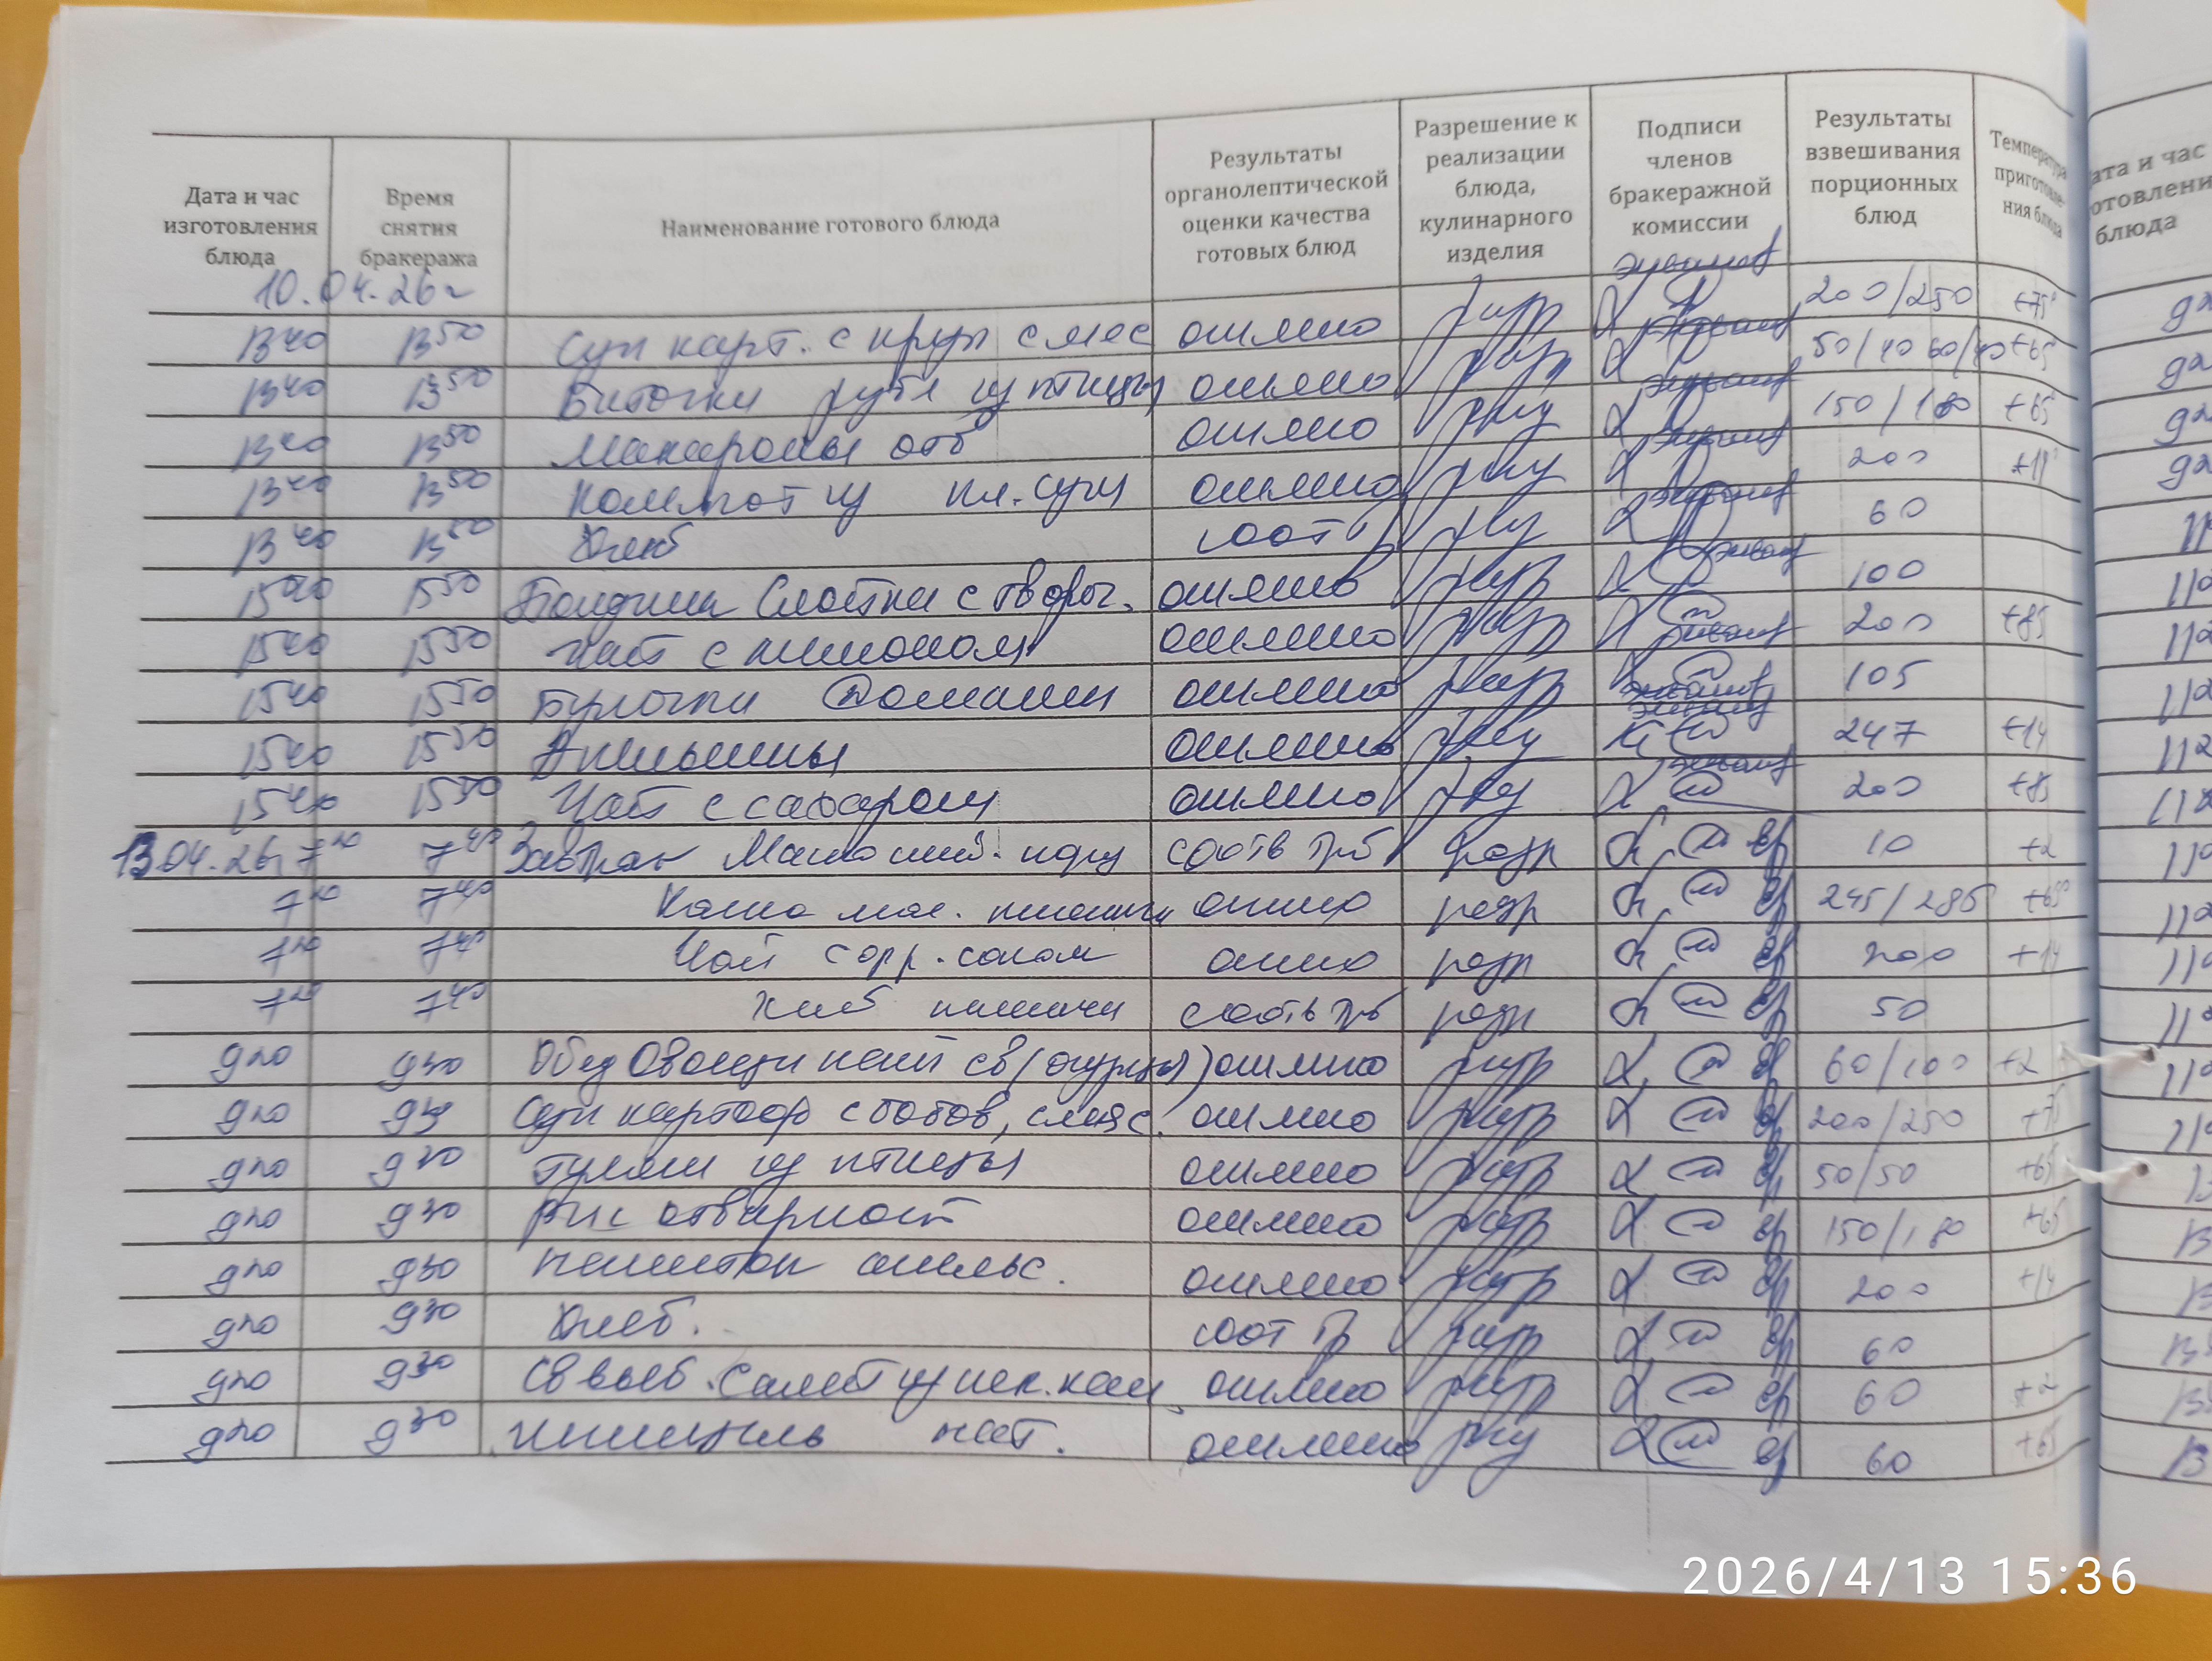 Дата и час изготовления блюда
Время снятия бракеража
Наименование готового блюда
Результаты органолептической оценки качества готовых блюд
Разрешение к реализации блюда, кулинарного изделия
Подписи членов бракеражной комиссии
Результаты взвешивания порционных блюд
Температура приготовле-ния блюда
10.04.26г
13 40 13 50 Суп карт. с круп с мяс отлично разр 200/250 +75°
13 40 13 50 Биточки рубл из птицы отлично разр 50/40 60/40 +65
13 40 13 50 Макароны отв отлично разр 150/180 +65
13 40 13 50 Компот из отлично разр 200
13 40 13 50 Хлеб соот тр разр 60
15 40 15 50 с творог. отлично разр 100
15 40 15 50 Чай с лимоном отлично разр 200 +85
15 40 15 50 Булочка Домашн отлично разр 105
15 40 15 50 Апельсины отлично разр 247 +14
15 40 15 50 Чай с сахаром отлично разр 200 +85
13.04.26г 7 20 7 40 Завтрак Масло слив. порц соотв трб разр 10 +2
7 20 7 40 Каша мол. пшенич отлично разр 245/285 +65
7 20 7 40 Чай с соком отлично разр 200 +14
7 20 7 40 Хлеб пшеничн соотв трб разр 50
9 20 9 30 Обед Овощи нат св (огурцы) отлично разр 60/100 +2
9 20 9 30 Суп картоф с бобов, с мяс. отлично разр 200/250 +75
9 20 9 30 Гуляш из птицы отлично разр 50/50 +65
9 20 9 30 Рис отварной отлично разр 150/180 +65
9 20 9 30 Напиток апельс. отлично разр 200 +14
9 20 9 30 Хлеб. соот тр разр 60
9 20 9 30 Св выб. Салат из пек. кап. отлично разр 60 +2
9 20 9 30 Шницель нат. отлично разр 60 +65
ата и час
отовлени
блюда
2026/4/13 15:36